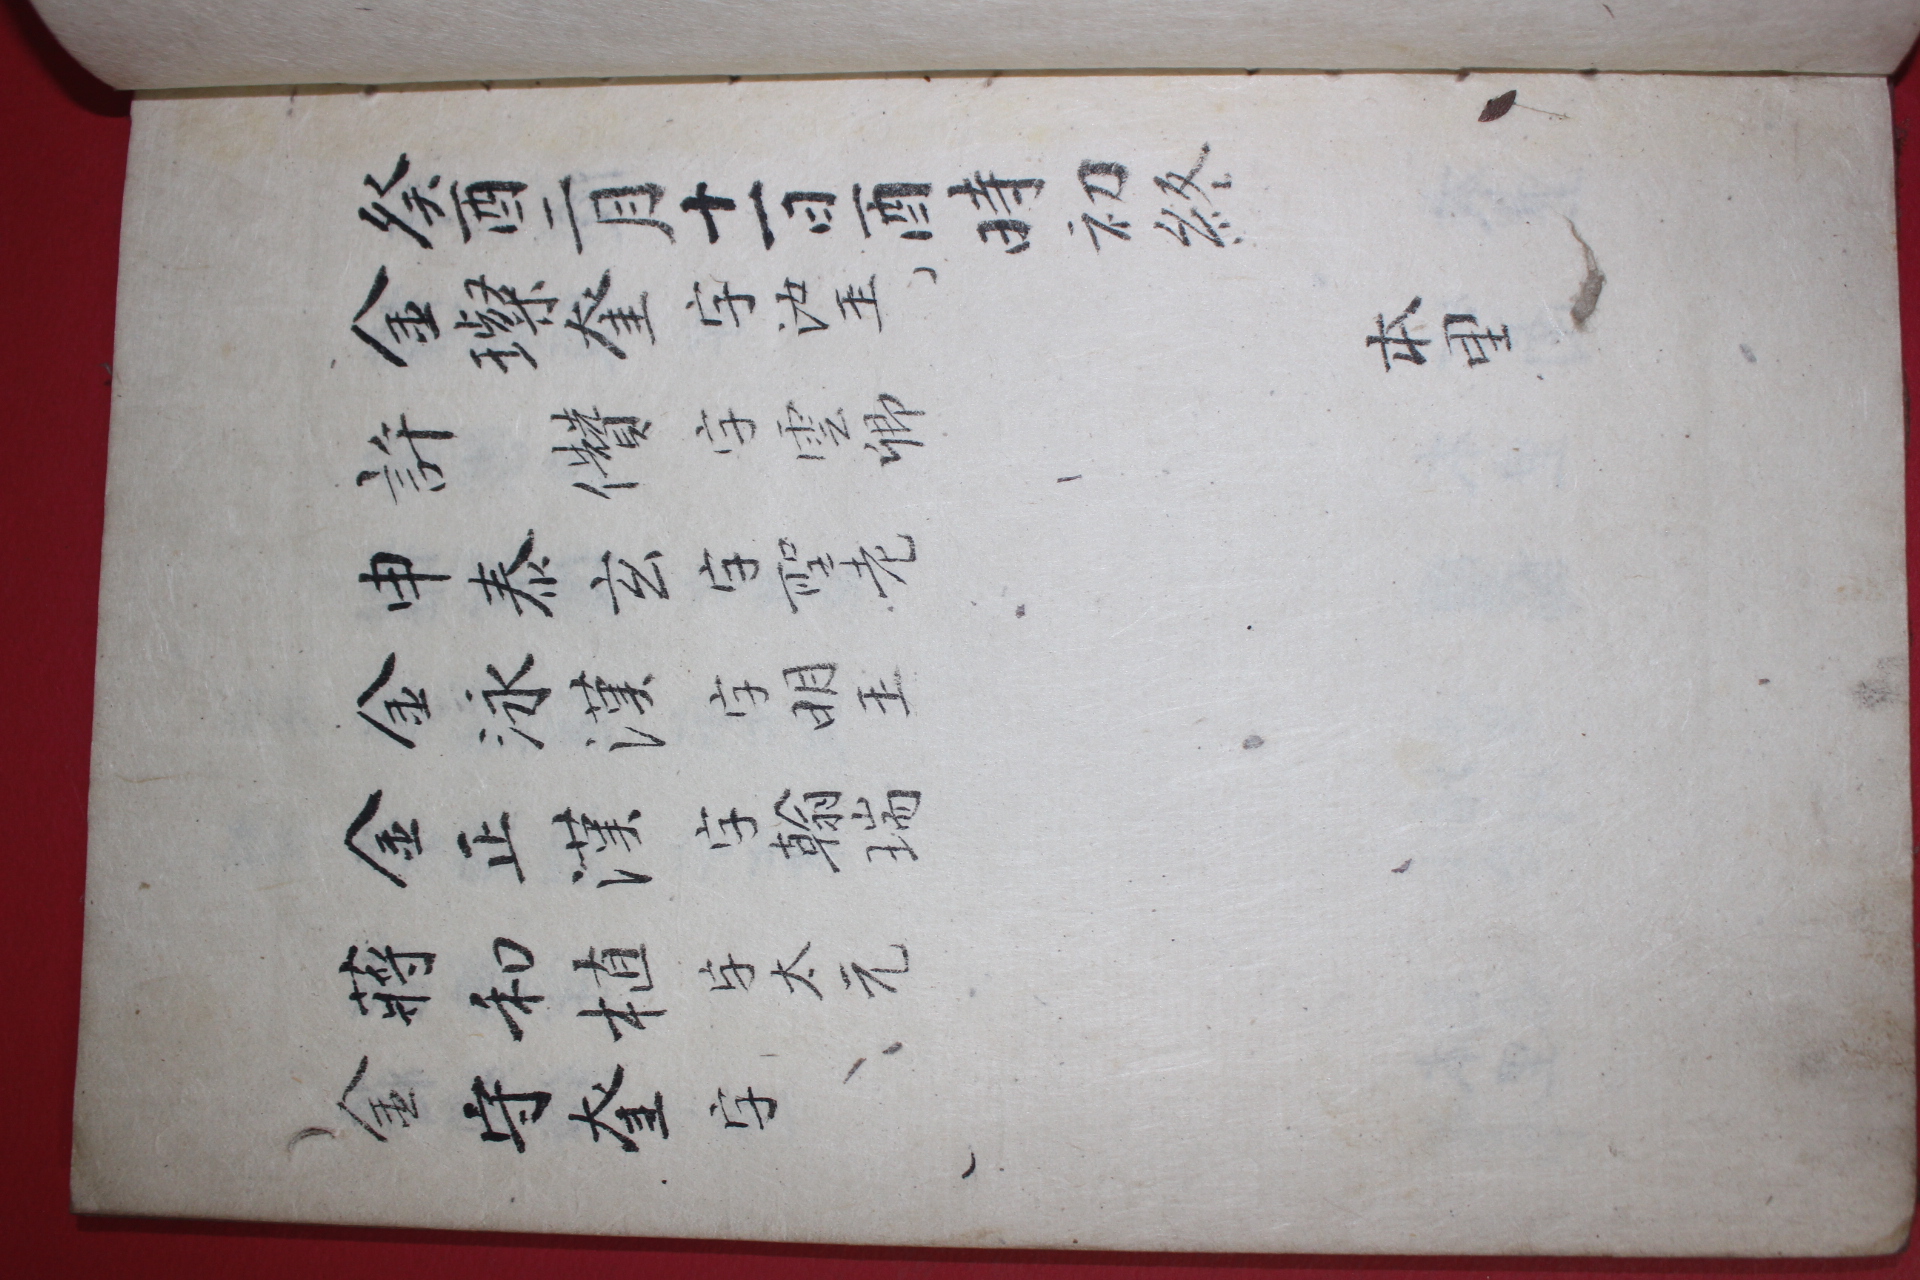 癸酉二月十一日酉時初終
金璨奎 字汝玉 本里
許 儧 字雲卿
申泰玄 字聖老
金泳漢 字明玉
金正漢 字翰瑞
蔣和植 字太元
金守奎 字